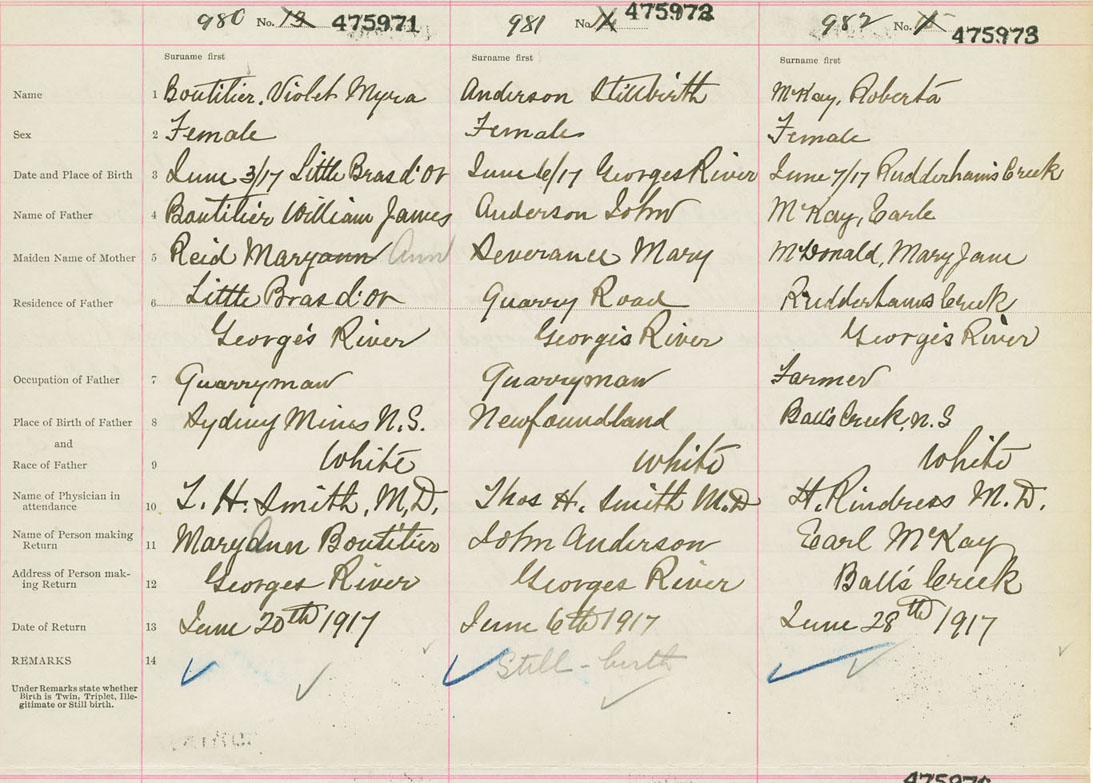 980 No. 13 475971 981 No. 14 475972 982 No. 475973
Surname first Surname first Surname first
Name 1 Boutilier, Violet Myra Anderson Stillbirth McKay, Roberta
Sex 2 Female Female Female
Date and Place of Birth 3 June 3/17 Little Bras d'Or June 6/17 Georges River June 7/17 Rudderhams Creek
Name of Father 4 Boutilier William James Anderson John McKay, Earle
Maiden Name of Mother 5 Reid Maryann Ann Severance Mary McDonald, Mary Jane
Residence of Father 6 Little Bras d'Or Quarry Road Rudderhams Creek
George's River Georges River George's River
Occupation of Father 7 Quarryman Quarryman Farmer
Place of Birth of Father 8 Sydney Mines N.S. Newfoundland Ball's Creek, N.S
and
Race of Father 9 White White White
Name of Physician in
attendance 10 T. H. Smith, M.D. Thos H. Smith M.D H. Rindress M.D.
Name of Person making
Return 11 Mary Ann Boutilier John Anderson Earl McKay
Address of Person mak-
ing Return 12 Georges River Georges River Ball's Creek
Date of Return 13 June 20th 1917 June 6th 1917 June 28th 1917
REMARKS 14 Still-birth
Under Remarks state whether
Birth is Twin, Triplet, Ille-
gitimate or Still birth.